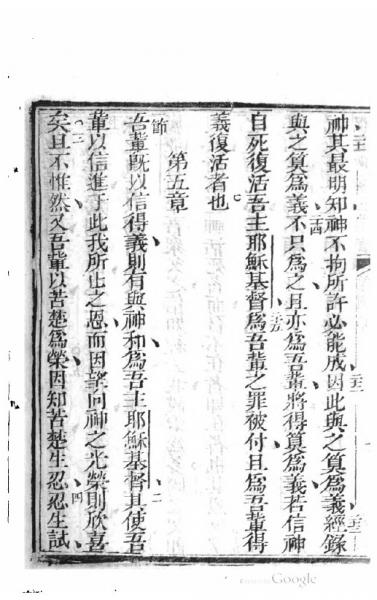 神其最明知神不拘所許必能成因此與之算爲義經錄
與之算爲義不只爲之且亦爲吾輩將得算爲義若信神
自死復活吾主耶穌基督爲吾輩之罪被付且爲吾輩得
義復活者也
第五章
節
吾輩既以信得義則有與神和爲吾主耶穌基督其使吾
輩以信進于此我所止之恩而因望向神之光榮則欣喜
矣且不惟然又吾輩以苦楚爲榮因知苦楚生忍忍生試
Google